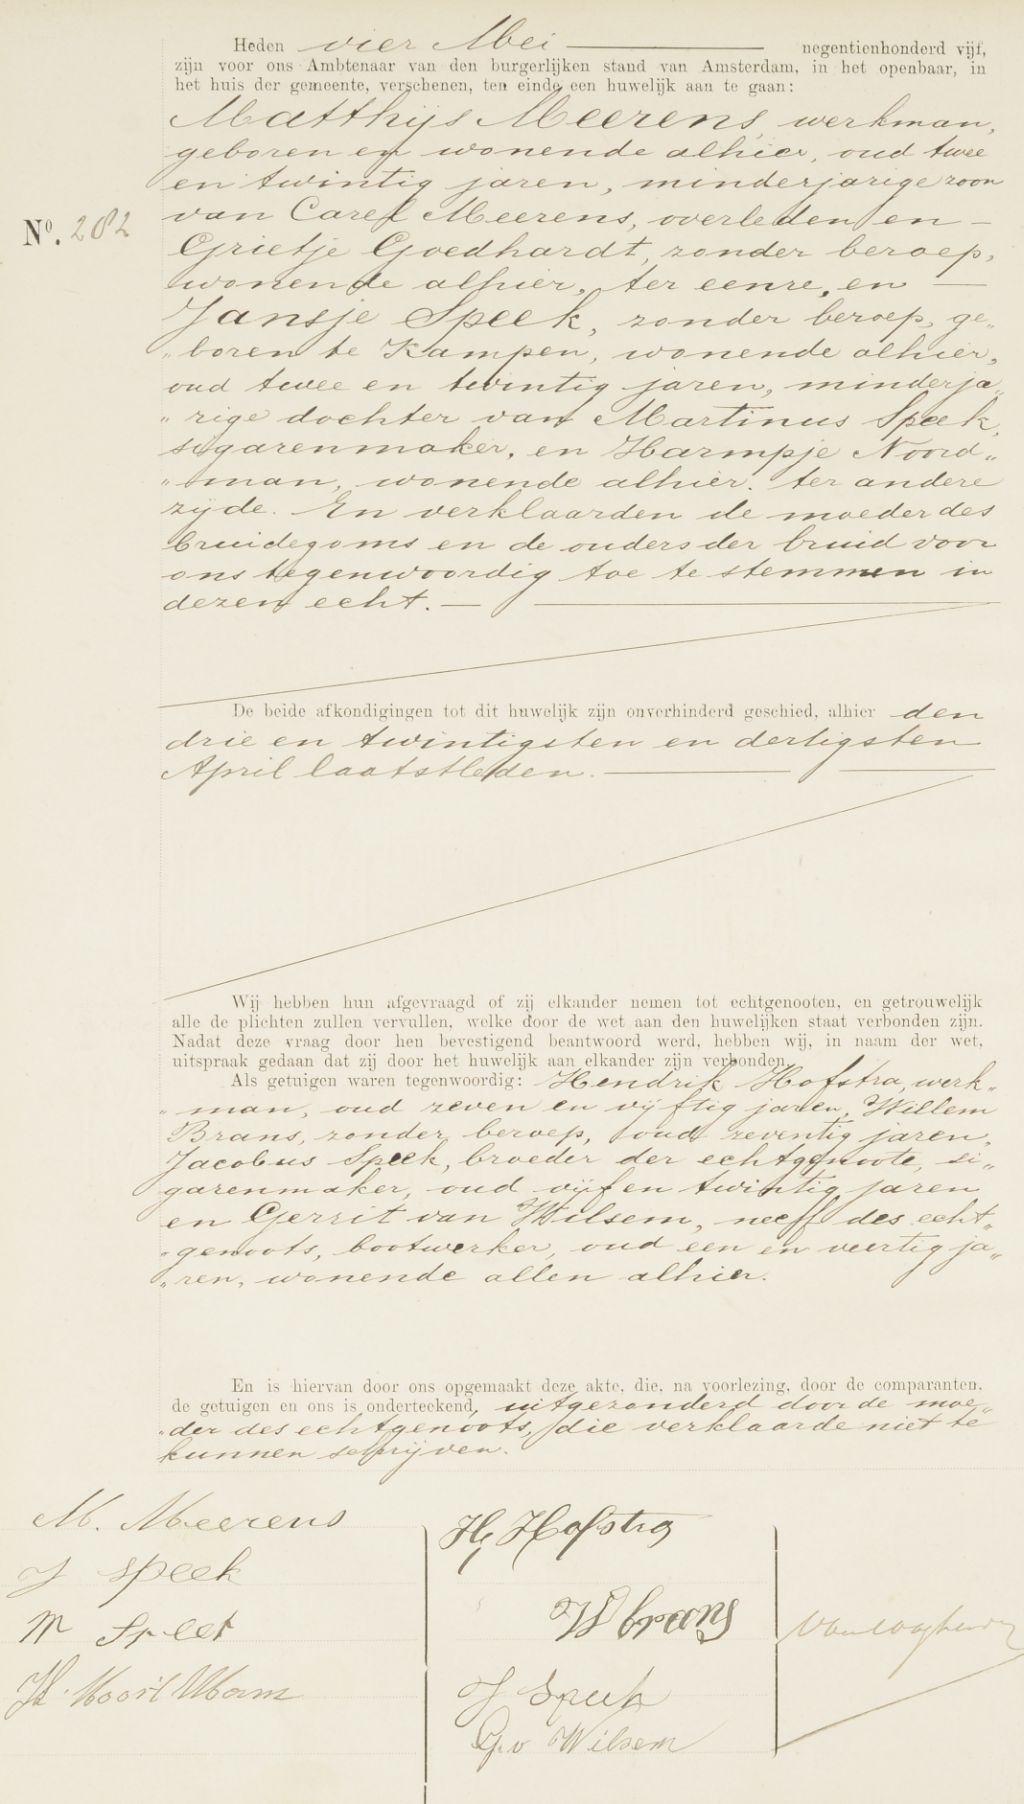 Heden vier Mei negentienhonderd vijf,
zijn voor ons Ambtenaar van den burgerlijken stand van Amsterdam, in het openbaar, in
het huis der gemeente, verschenen, ten einde een huwelijk aan te gaan:
Matthijs Meerens, werkman,
geboren en wonende alhier, oud twee
en twintig jaren, minderjarige zoon
van Carel Meerens, overleden en
Nº. 282
Grietje Goedhardt, zonder beroep,
wonende alhier, ter eenre, en
Jansje Speek, zonder beroep, ge„
„boren te Kampen, wonende alhier,
oud twee en twintig jaren, minderja„
„rige dochter van Martinus Speek,
sigarenmaker, en Harmpje Noord„
„man, wonende alhier. ter andere
zijde. En verklaarden de moeder des
bruidegoms en de ouders der bruid voor
ons tegenwoordig toe te stemmen in
dezen echt.
De beide afkondigingen tot dit huwelijk zijn onverhinderd geschied, alhier den
drie en twintigsten en dertigsten
April laatstleden.
Wij hebben hun afgevraagd of zij elkander nemen tot echtgenooten, en getrouwelijk
alle de plichten zullen vervullen, welke door de wet aan den huwelijken staat verbonden zijn.
Nadat deze vraag door hen bevestigend beantwoord werd, hebben wij, in naam der wet,
uitspraak gedaan dat zij door het huwelijk aan elkander zijn verbonden.
Als getuigen waren tegenwoordig: Hendrik Hofstra, werk„
„man, oud zeven en vijftig jaren, Willem
Brans, zonder beroep, oud zeventig jaren,
Jacobus Speek, broeder der echtgenoote, si„
garenmaker, oud vijf en twintig jaren
en Gerrit van Wilsem, neef des echt„
„genoots, bootwerker, oud een en veertig ja„
„ren, wonende allen alhier.
En is hiervan door ons opgemaakt deze akte, die, na voorlezing, door de comparanten,
de getuigen en ons is onderteekend, uitgezonderd door de moe„
„der des echtgenoots, die verklaarde niet te
kunnen schrijven.
M. Meerens
J Speek
M Speek
H. Noordman
H Hofstra
W brans
J Speek
G. v Wilsem